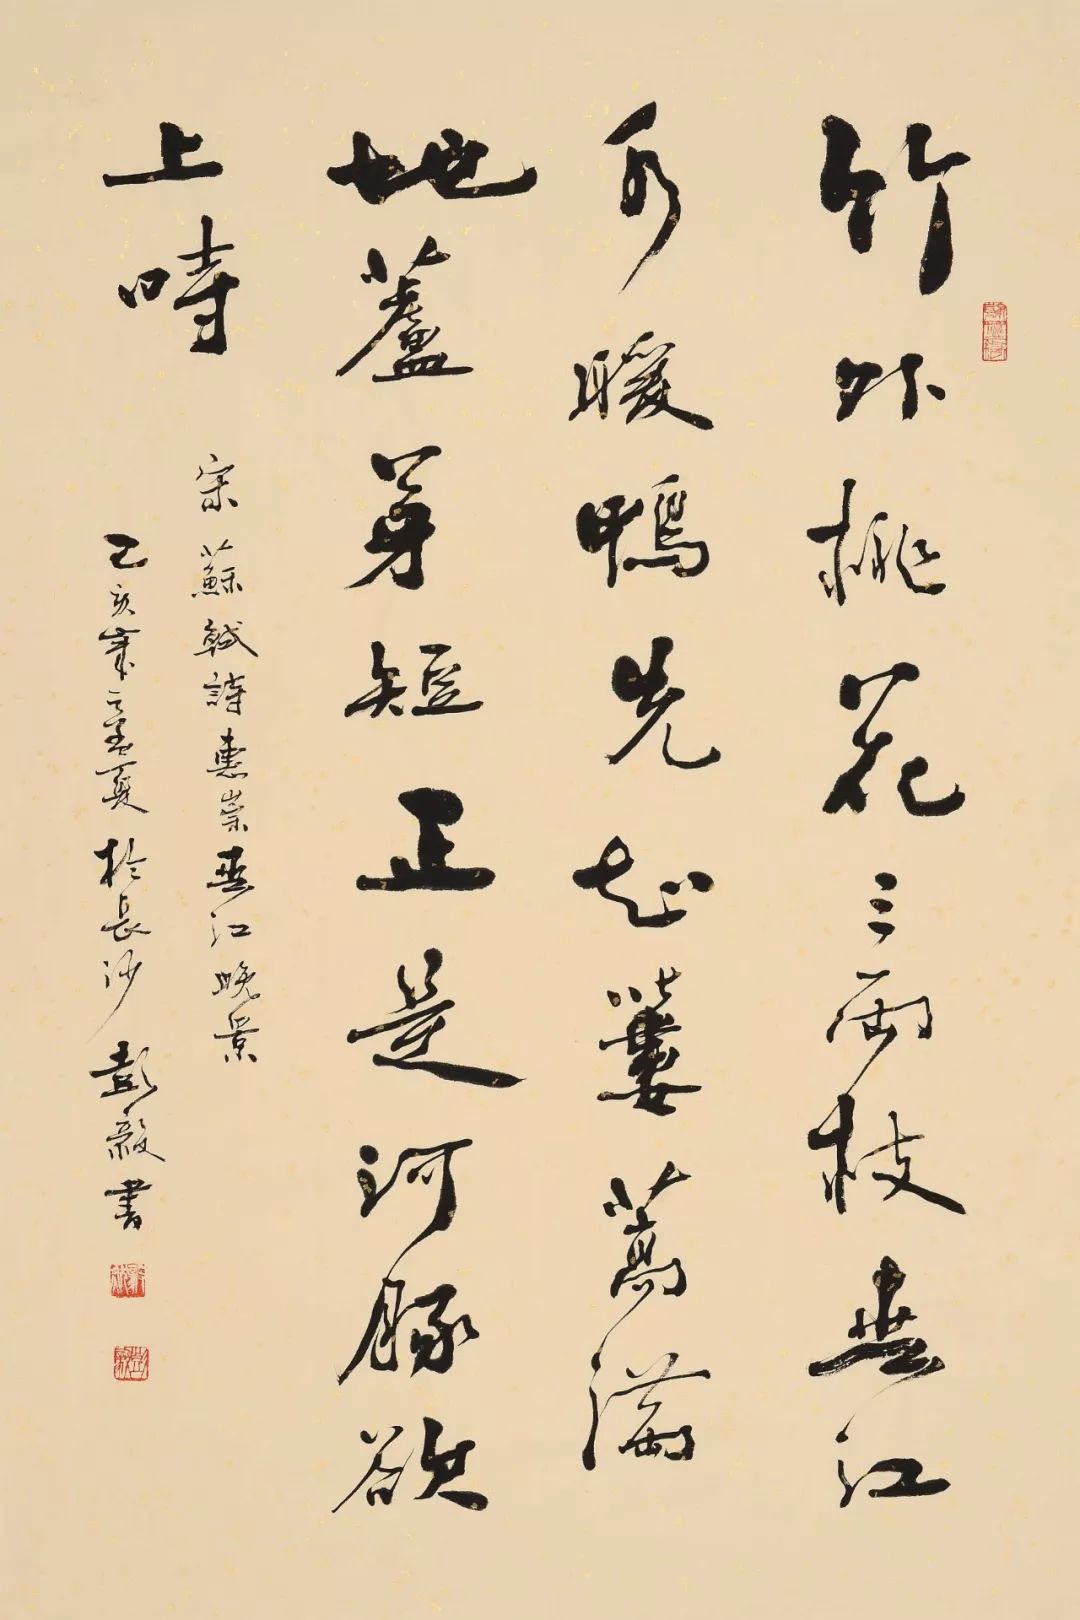 竹外桃花三兩枝春江
水暖鴨先知蔞蒿滿
地蘆芽短正是河豚欲
上時
宋蘇軾詩惠崇春江晚景
己亥年之孟夏於長沙彭毅書